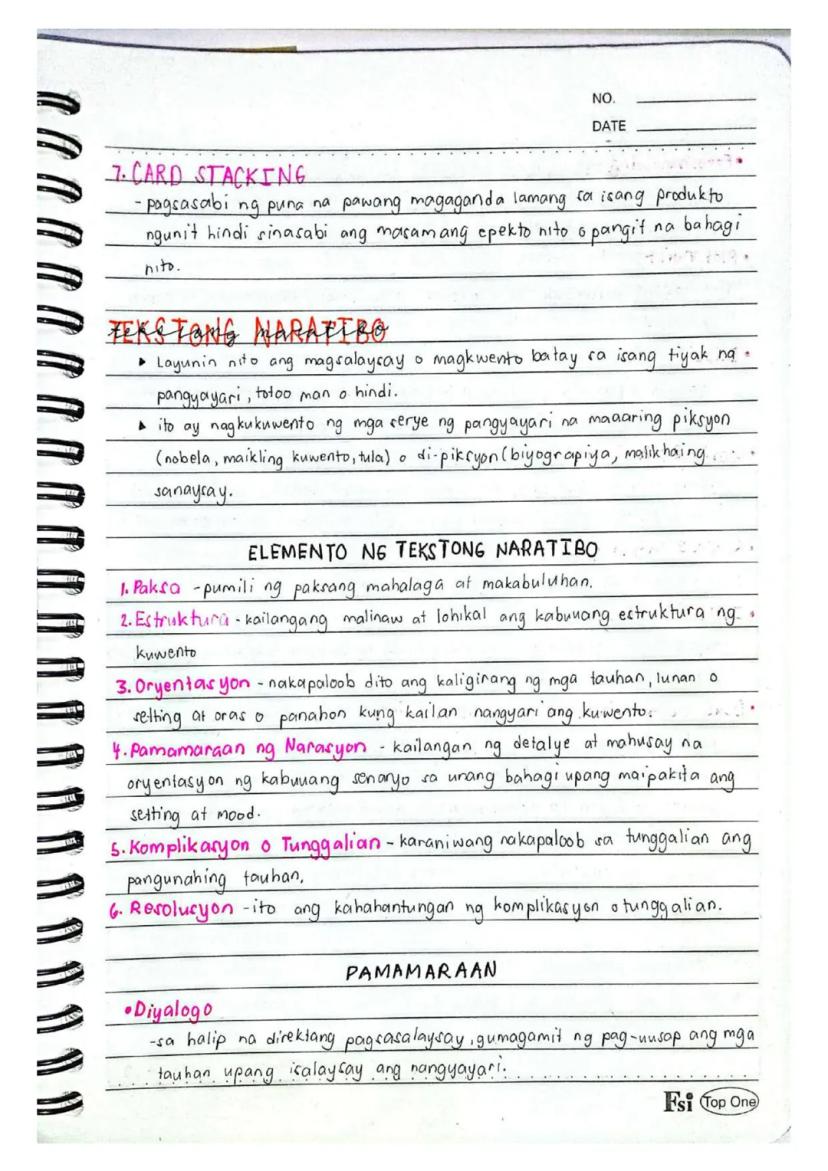 NO.
DATE
7. CARD STACKING
- pagsasabi ng puna na pawang magaganda lamang sa isang produkto
ngunit hindi sinasabi ang masamang epekto nito o pangit na bahagi
nito.
TEKSTONG NARATIBO
tekstong naratibo
▸ Layunin nito ang magsalaysay o magkwento batay sa isang tiyak na
pangyayari, totoo man o hindi.
▸ ito ay nagkukuwento ng mga serye ng pangyayari na maaaring piksyon
(nobela, maikling kuwento, tula) o di-piksyon (biyograpiya, malikhaing
sanaysay.
ELEMENTO NG TEKSTONG NARATIBO
1. Paksa - pumili ng paksang mahalaga at makabuluhan.
2. Estruktura - kailangang malinaw at lohikal ang kabuuang estruktura ng
kuwento
3. Oryentasyon - nakapaloob dito ang kaligirang ng mga tauhan, lunan o
setting at oras o panahon kung kailan nangyari ang kuwento.
4. Pamamaraan ng Narasyon - kailangan ng detalye at mahusay na
oryentasyon ng kabuuang senaryo sa unang bahagi upang maipakita ang
setting at mood.
5. Komplikasyon o Tunggalian - karaniwang nakapaloob sa tunggalian ang
pangunahing tauhan.
6. Resolusyon - ito ang kahahantungan ng komplikasyon o tunggalian.
PAMAMARAAN
• Diyalogo
- sa halip na direktang pagsasalaysay, gumagamit ng pag-uusap ang mga
tauhan upang isalaysay ang nangyayari.
Fsi Top One